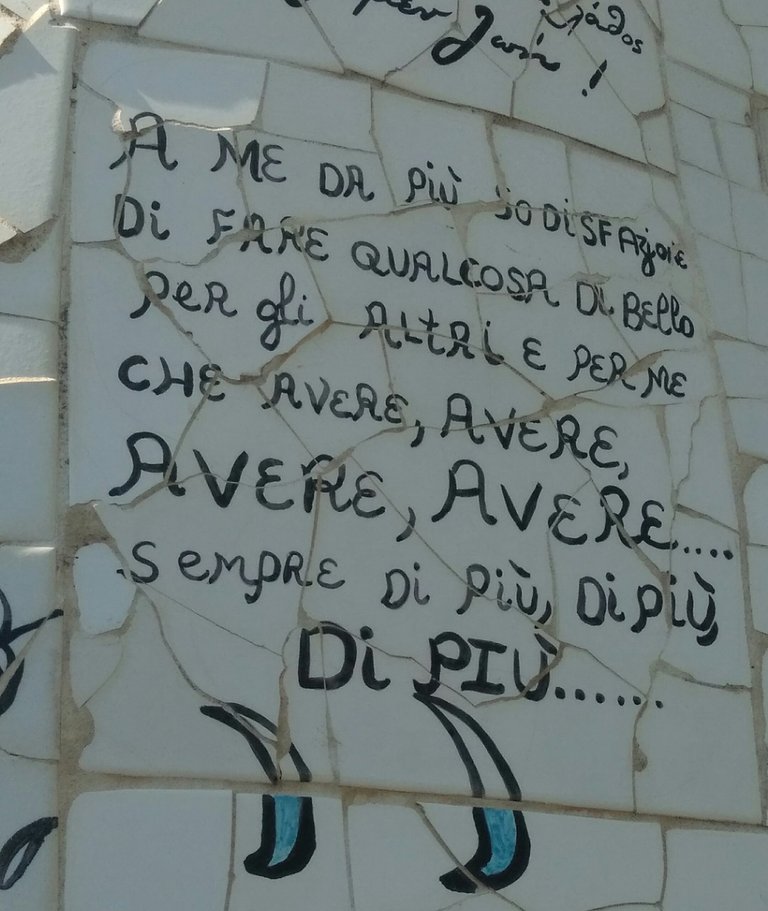 Gaín!
A ME DA Più SODiSFAzioie
Di FARE QUALCOSA Di BELLO
PER gli ALtRi E PER ME
CHE AVERE, AVERE,
AVERE, AVERE....
SEmpRE Di Più, Di PiÙ,
Di PIÙ.......